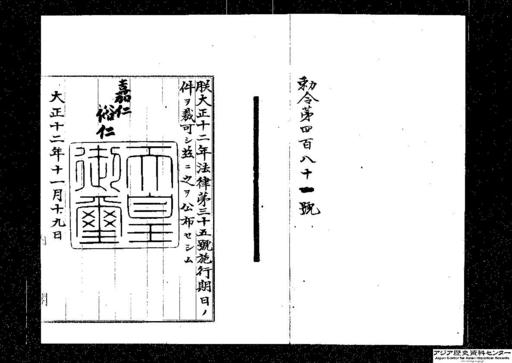 勅令第四百八十一號
朕大正十二年法律第三十五號施行期日ノ
件ヲ裁可シ玆ニ之ヲ公布セシム
嘉仁
裕仁
天皇
御璽
大正十二年十一月十九日
アジア歴史資料センター
Japan Center for Asian Historical Records